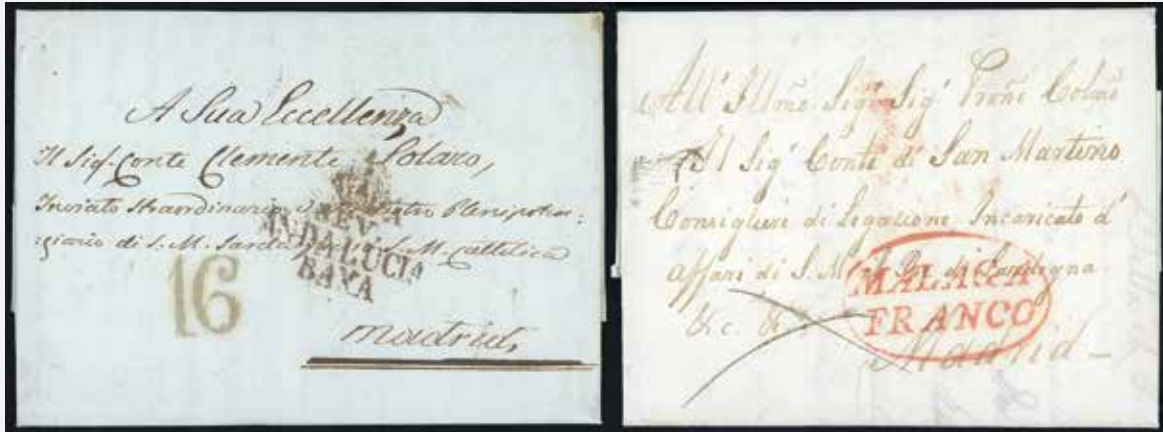 A Sua Eccellenza
Il Sig. Conte Clemente Solaro,
Inviato Straordinario Plenipoten:
ziario di S. M. Sarda S. M. Cattolica
ANDALUCIA
BAXA
16
Madrid,
All' Illmo Sig. Sig.
Al Sig. Conte di San Martino
Consigliere di Legazione Incaricato d'
affari di S. M. il Re di Sardegna
&c. &
MALAGA
FRANCO
Madrid